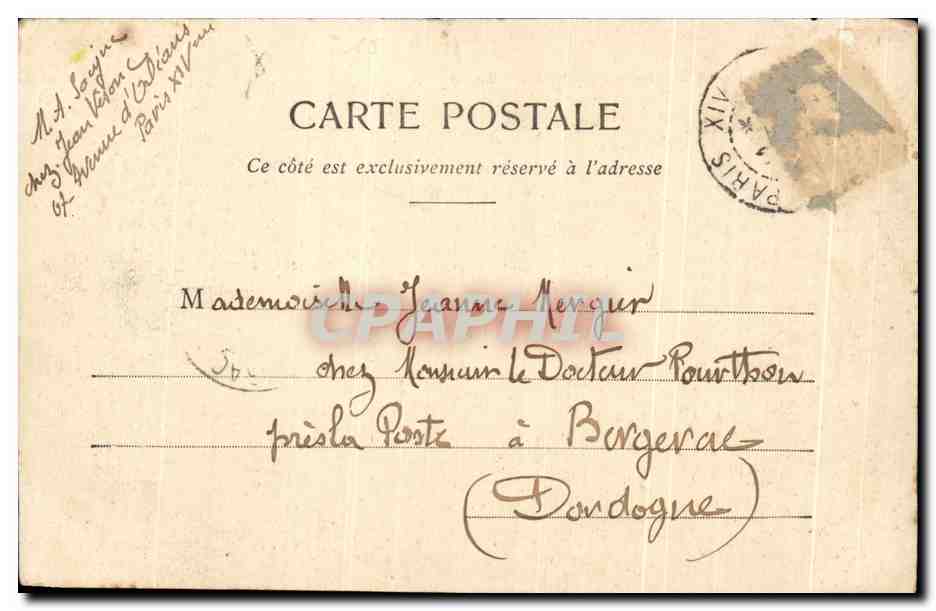 M. A. Soejne
chez Jean Veson
67 Avenue d'Orléans
Paris XIVme
CARTE POSTALE
Ce côté est exclusivement réservé à l'adresse
PARIS XIX
Mademoiselle Jeanne Mergier
CPAPHIL
chez Monsieur le Docteur Pourthon
près la Poste à Bergerac
(Dordogne)